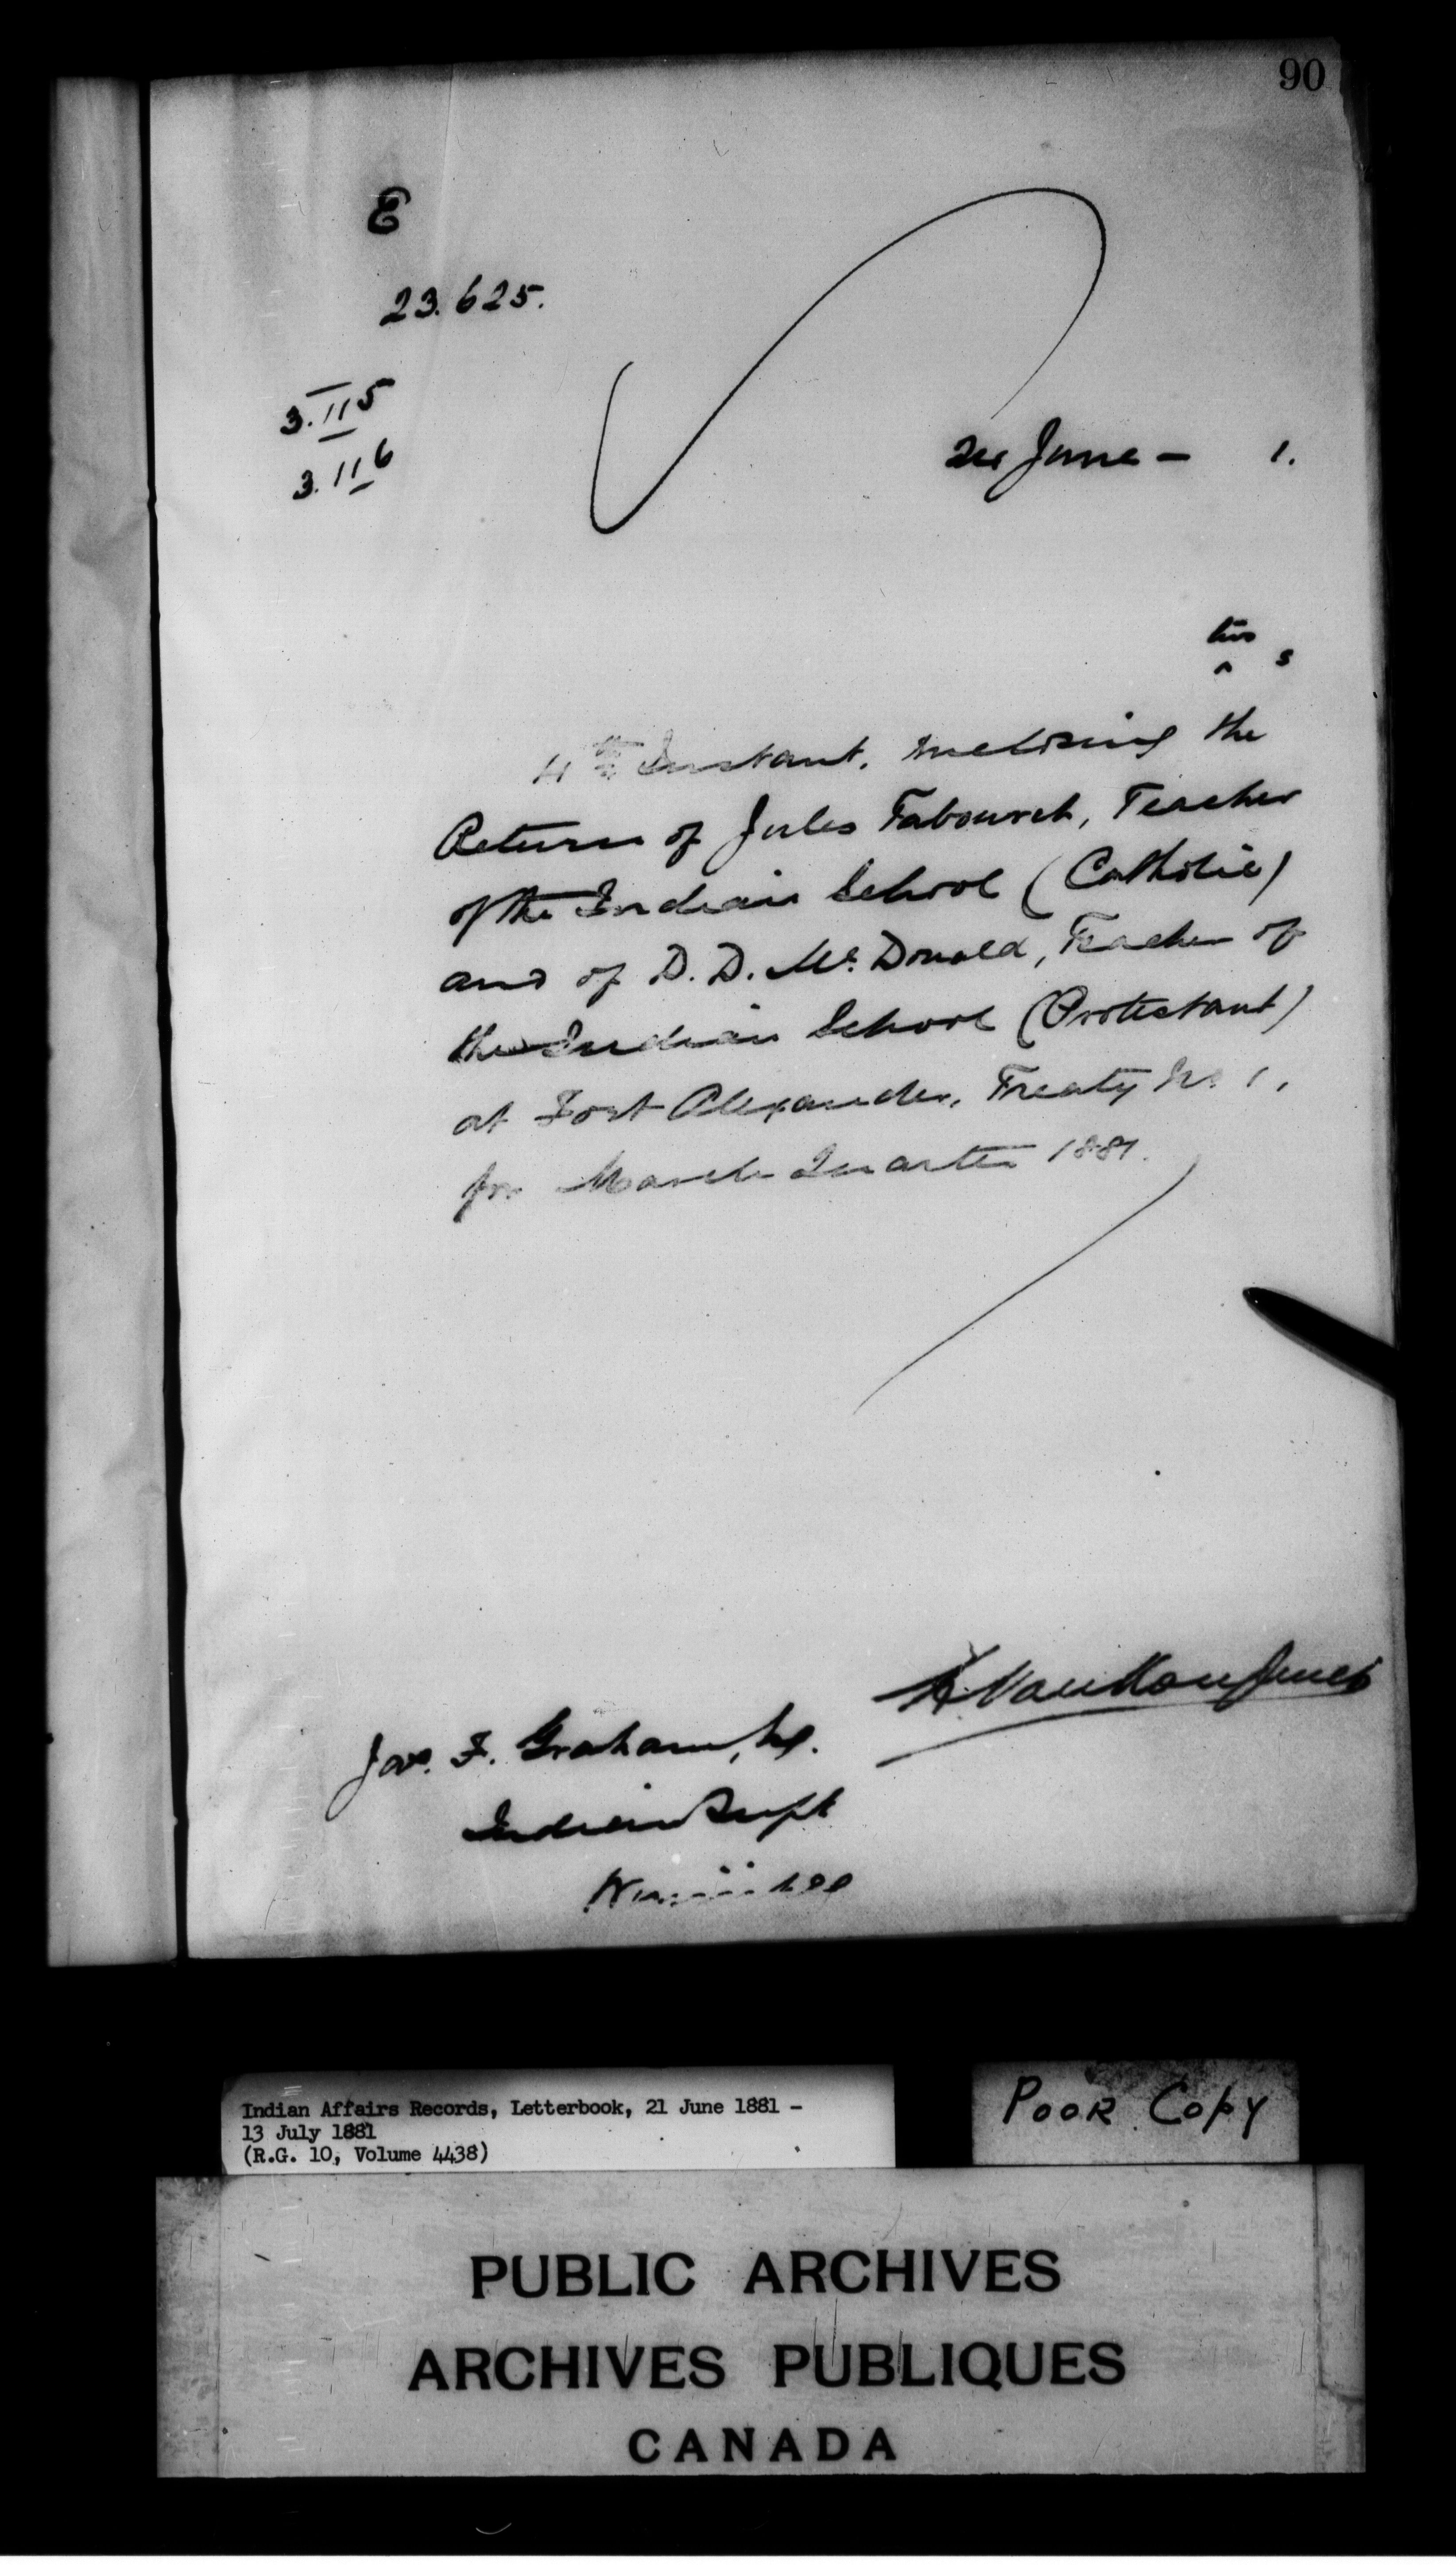 90
E
23.625.
3.115
3.116
June - 1.
two
^ s
4th Instant, inclosing the
Return of Jules Tabourch, Teacher
of the Indian School (Catholic)
and of D. D. Mc Donald, Teacher of
the Indian School (Protestant)
at Fort Alexander, Treaty No 1,
for March Quarter 1881.
L. VanKoughnet
Jas. F. Graham, Esq.
Indian Supt
Winnipeg
Indian Affairs Records, Letterbook, 21 June 1881 -
13 July 1881
(R.G. 10, Volume 4438)
POOR COPY
PUBLIC ARCHIVES
ARCHIVES PUBLIQUES
CANADA